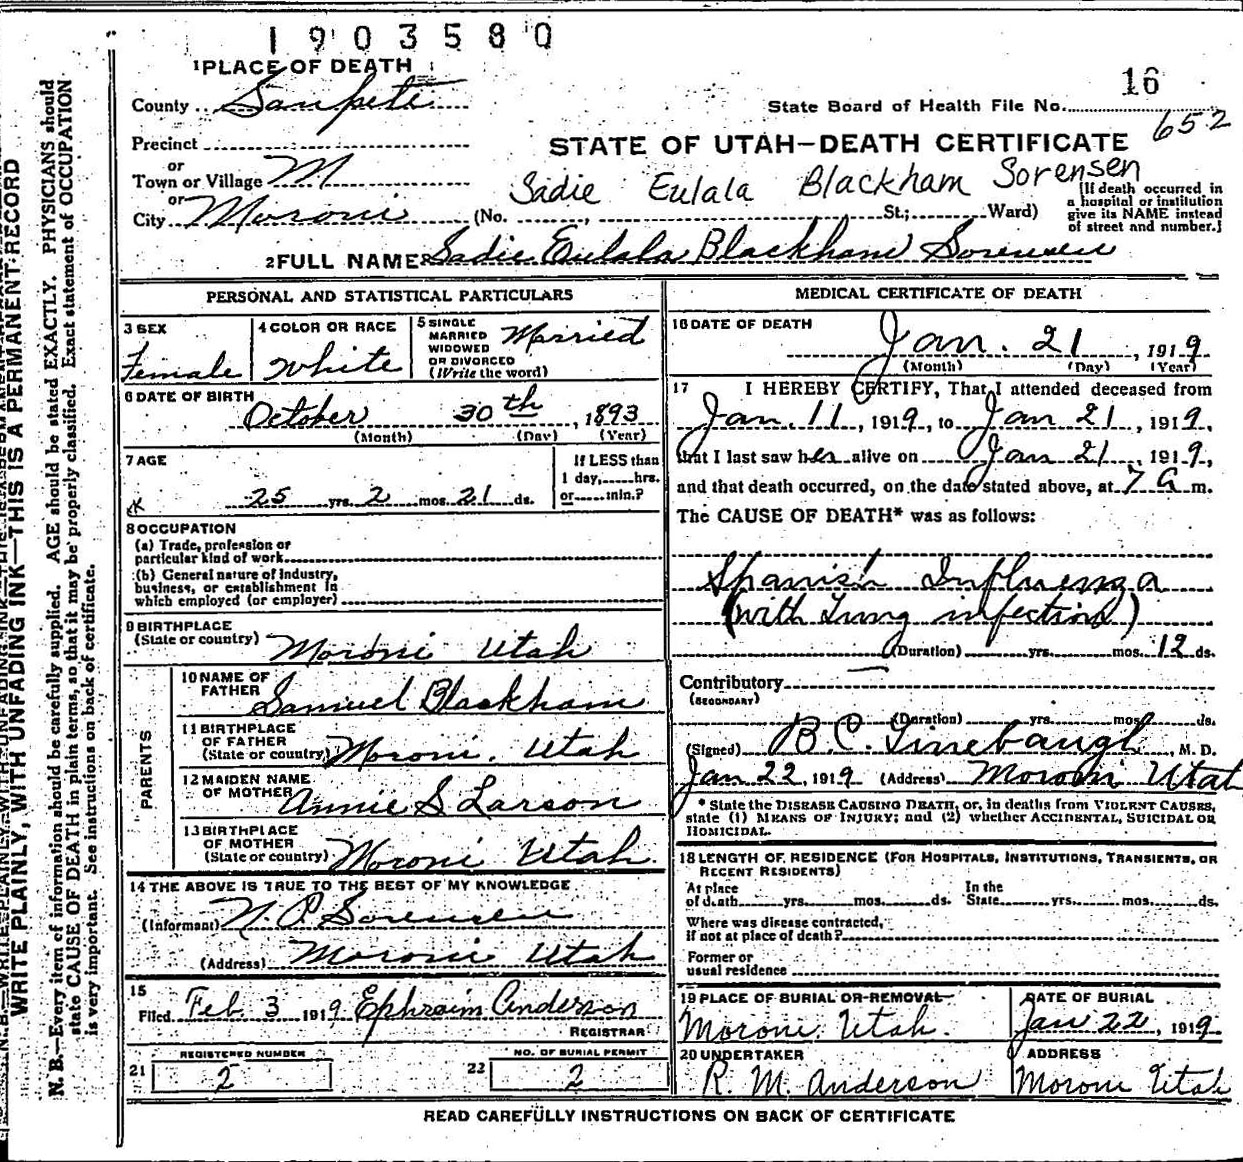 1903580
1 PLACE OF DEATH
County Sanpete
16
State Board of Health File No.
652
Precinct
STATE OF UTAH—DEATH CERTIFICATE
or
Town or Village M
Sadie Eulala Blackham Sorensen
or
City Moroni (No. , St.; Ward)
[If death occurred in
a hospital or institution
give its NAME instead
of street and number.]
2 FULL NAME Sadie Eulala Blackham Sorensen
PERSONAL AND STATISTICAL PARTICULARS
3 SEX
Female
4 COLOR OR RACE
White
5 SINGLE
MARRIED
WIDOWED
OR DIVORCED
(Write the word)
Married
6 DATE OF BIRTH
October 30th, 1893
(Month) (Day) (Year)
7 AGE
25 yrs. 2 mos. 21 ds.
If LESS than
1 day, hrs.
or min.?
8 OCCUPATION
(a) Trade, profession or
particular kind of work
(b) General nature of industry,
business, or establishment in
which employed (or employer)
9 BIRTHPLACE
(State or country) Moroni Utah
PARENTS
10 NAME OF
FATHER Samuel Blackham
11 BIRTHPLACE
OF FATHER
(State or country) Moroni, Utah
12 MAIDEN NAME
OF MOTHER Annie S. Larson
13 BIRTHPLACE
OF MOTHER
(State or country) Moroni Utah.
14 THE ABOVE IS TRUE TO THE BEST OF MY KNOWLEDGE
(Informant) N. P. Sorensen
(Address) Moroni Utah
15
Filed Feb. 3 1919 Ephraim Anderson
REGISTRAR
21 REGISTERED NUMBER
2
22 NO. OF BURIAL PERMIT
2
MEDICAL CERTIFICATE OF DEATH
16 DATE OF DEATH
Jan. 21, 1919
(Month) (Day) (Year)
17 I HEREBY CERTIFY, That I attended deceased from
Jan. 11, 1919, to Jan 21, 1919,
that I last saw her alive on Jan 21, 1919,
and that death occurred, on the date stated above, at 7 a m.
The CAUSE OF DEATH* was as follows:
Spanish Influenza
(with Lung infection)
(Duration) yrs. mos. 12 ds.
Contributory
(SECONDARY)
(Duration) yrs. mos. ds.
(Signed) B. C. Linebaugh, M. D.
Jan 22, 1919 (Address) Moroni Utah
* State the DISEASE CAUSING DEATH, or, in deaths from VIOLENT CAUSES,
state (1) MEANS OF INJURY; and (2) whether ACCIDENTAL, SUICIDAL OR
HOMICIDAL.
18 LENGTH OF RESIDENCE (FOR HOSPITALS, INSTITUTIONS, TRANSIENTS, OR
RECENT RESIDENTS)
At place
of death yrs. mos. ds.
In the
State yrs. mos. ds.
Where was disease contracted,
if not at place of death?
Former or
usual residence
19 PLACE OF BURIAL OR REMOVAL
Moroni Utah.
DATE OF BURIAL
Jan 22, 1919
20 UNDERTAKER
R. M. Anderson
ADDRESS
Moroni Utah
READ CAREFULLY INSTRUCTIONS ON BACK OF CERTIFICATE
WRITE PLAINLY, WITH UNFADING INK—THIS IS A PERMANENT RECORD
N. B.—Every item of information should be carefully supplied. AGE should be stated EXACTLY. PHYSICIANS should
state CAUSE OF DEATH in plain terms, so that it may be properly classified. Exact statement of OCCUPATION
is very important. See instructions on back of certificate.